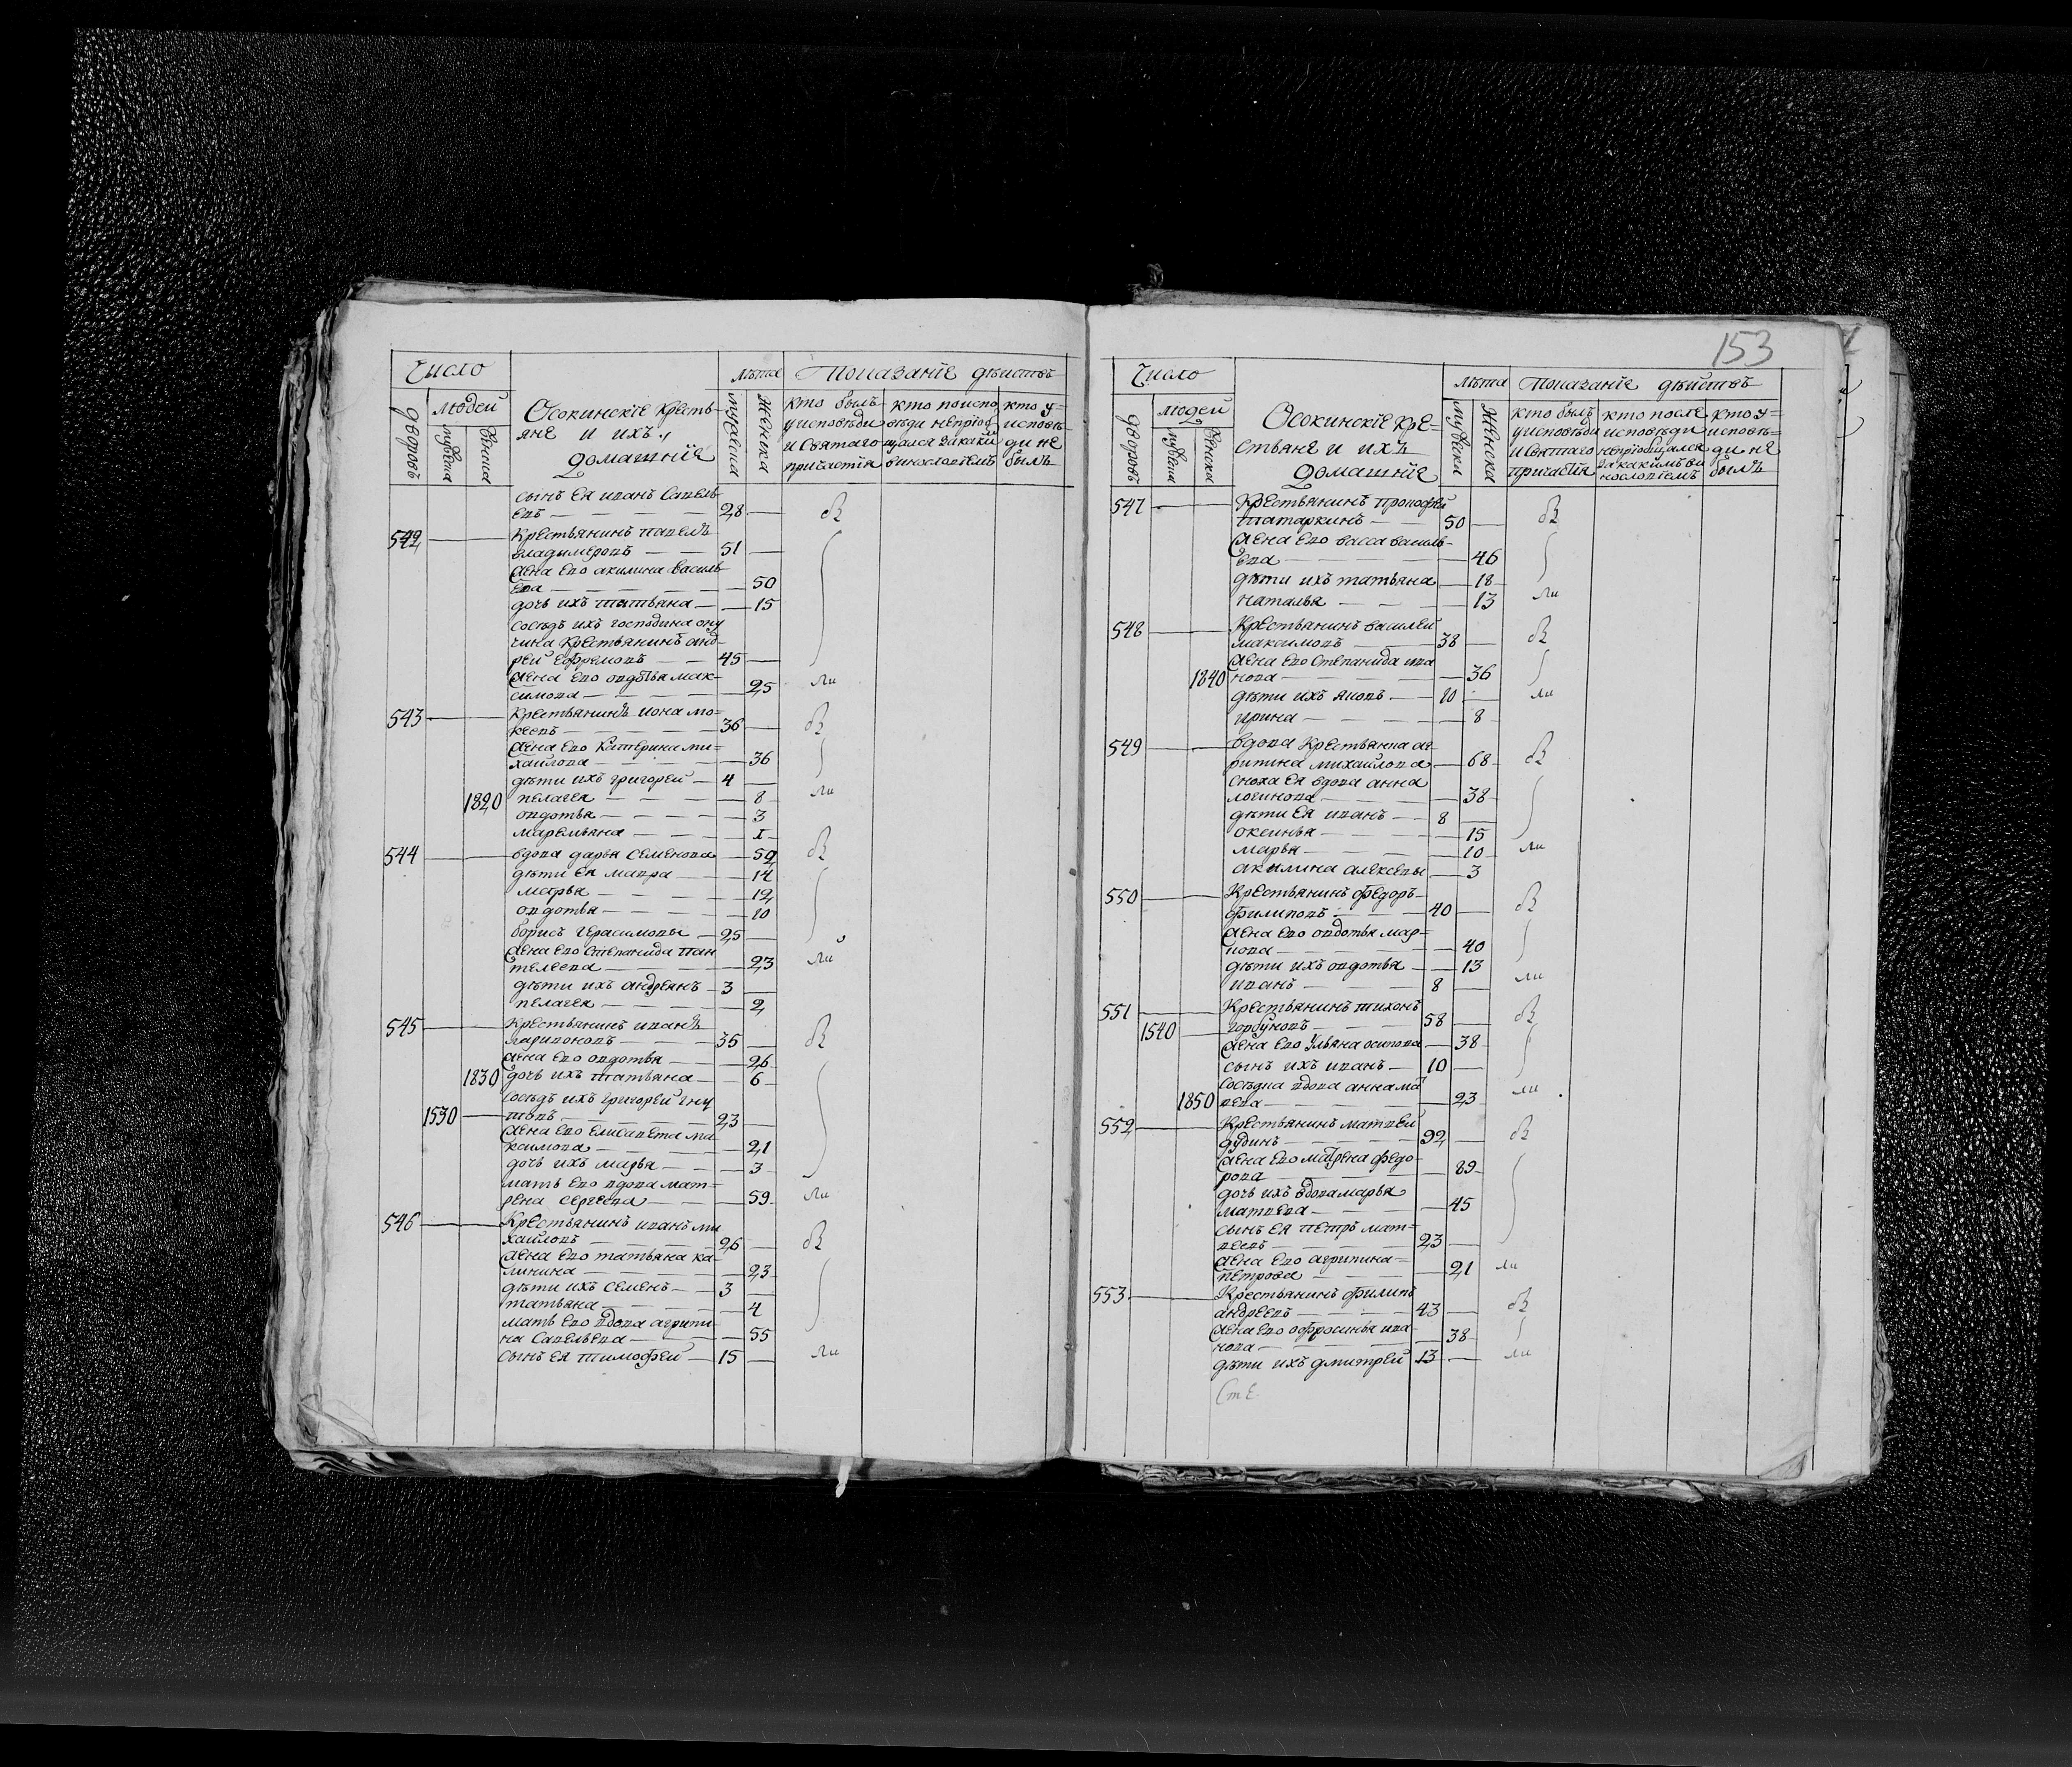 Число
лѣта Показанїе дѣйствъ
людей
дворовъ
мужеска
женска
Осокинскїе кресть-
яне и ихъ
домашнїе
мужеска
женска
кто былъ
у исповѣди
и святаго
причастїя
кто по испо
вѣди непрїоб
щался за каки
винословїемъ
кто у=
исповѣ-
ди не
былъ
сынъ ея иванъ Савель
евъ — 28 —
542 — Крестьянинъ павелъ
владимеровъ — 51 —
жена ево акилина василь
ева — 50
дочь ихъ татьяна — 15
сосѣдъ ихъ господина ону
чина крестьянинъ анд-
рей ефремовъ — 45 —
жена ево овдотья мак-
симова — 25 ли
543 — Крестьянинъ иона мо-
кеевъ — 36 —
жена ево катерина ми=
хайлова — 36
дѣти ихъ григорей — 4 —
1820 пелагея — 8 ли
овдотья — 3
маремьяна — 1
544 — вдова дарья семенова — 52
дѣти ея мавра — 14
марья — 12
овдотья — 10
борисъ герасимовы — 25 —
жена ево степанида пан
телеева — 23 ли
дѣти ихъ андреянъ — 3 —
пелагея — 2
545 — Крестьянинъ иванъ
ларивоновъ — 35 —
жена ево овдотья — 26
1830 дочь ихъ татьяна — 6
сосѣдъ ихъ григорей гну
1530 — товъ — 23 —
жена ево елисавета ма
ксимова — 21
дочь ихъ марья — 3
мать ево вдова мат=
рена сергеева — 59 ли
546 — Крестьянинъ иванъ ми
хайловъ — 26 —
жена ево татьяна ка-
линина — 23
дѣти ихъ семенъ — 3 —
татьяна — 4
мать ево вдова агрипи-
на савельева — 55
сынъ ея тимофей — 15 — ли
153
Число
лѣта Показанїе дѣйствъ
людей
дворовъ
мужеска
женска
Осокинскїе кре=
стьяне и ихъ
домашнїе
мужеска
женска
кто былъ
у исповѣди
и святаго
причастїя
кто после
исповѣди
непрїобщался
за какимъ ви
нословїемъ
кто у=
исповѣ=
ди не
былъ
547 — Крестьянинъ прокофей
татаркинъ — 50 —
жена ево васса василь-
ева — 46
дѣти ихъ татьяна — 18
наталья — 13 ли
548 — Крестьянинъ василей
максимовъ — 38 —
жена ево степанида ива
1840 нова — 36
дѣти ихъ яковъ — 10 ли
ирина — 8
549 — вдова крестьянка
михайлова — 68
сноха ея вдова анна
логинова — 38
дѣти ея иванъ — 8 —
оксинья — 15
марья — 10 ли
акилина алексевы — 3
550 — Крестьянинъ федоръ
филиповъ — 40 —
жена ево овдотья мар-
кова — 40
дѣти ихъ овдотья — 13
иванъ — 8 — ли
551 — Крестьянинъ тихонъ
1540 — горбуновъ — 58 —
жена ево ульяна осипова — 38
сынъ ихъ иванъ — 10 —
сосѣдка вдова анна мат
1850 веева — 23 ли
552 — Крестьянинъ матвей
дудинъ — 92 —
жена ево матрена федо-
рова — 89
дочь ихъ вдова марья
матвева — 45
сынъ ея петръ мат=
веевъ — 23 —
жена ево агрипина=
петрова — 21 ли
553 — Крестьянинъ филипъ
андреевъ — 43 —
жена ево офросинья ива
нова — 38
дѣти ихъ дмитрей — 13 — ли
Сте